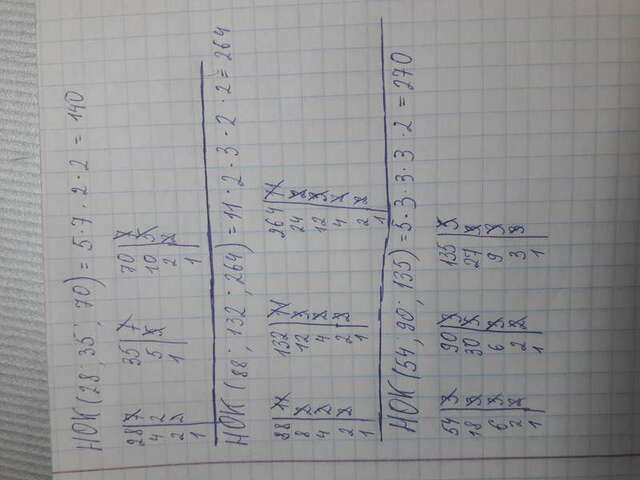 НОК (28; 35; 70) = 5 · 7 · 2 · 2 = 140
28 | 7 35 | 7 70 | 7
4 | 2 5 | 5 10 | 5
2 | 2 1 2 | 2
1 1
НОК (88; 132; 264) = 11 · 2 · 3 · 2 · 2 = 264
88 | 11 132 | 11 264 | 11
8 | 2 12 | 3 24 | 2
4 | 2 4 | 2 12 | 3
2 | 2 2 | 2 4 | 2
1 1 2 | 2
1
НОК (54; 90; 135) = 5 · 3 · 3 · 3 · 2 = 270
54 | 3 90 | 3 135 | 5
18 | 3 30 | 5 27 | 3
6 | 3 6 | 3 9 | 3
2 | 2 2 | 2 3 | 3
1 1 1